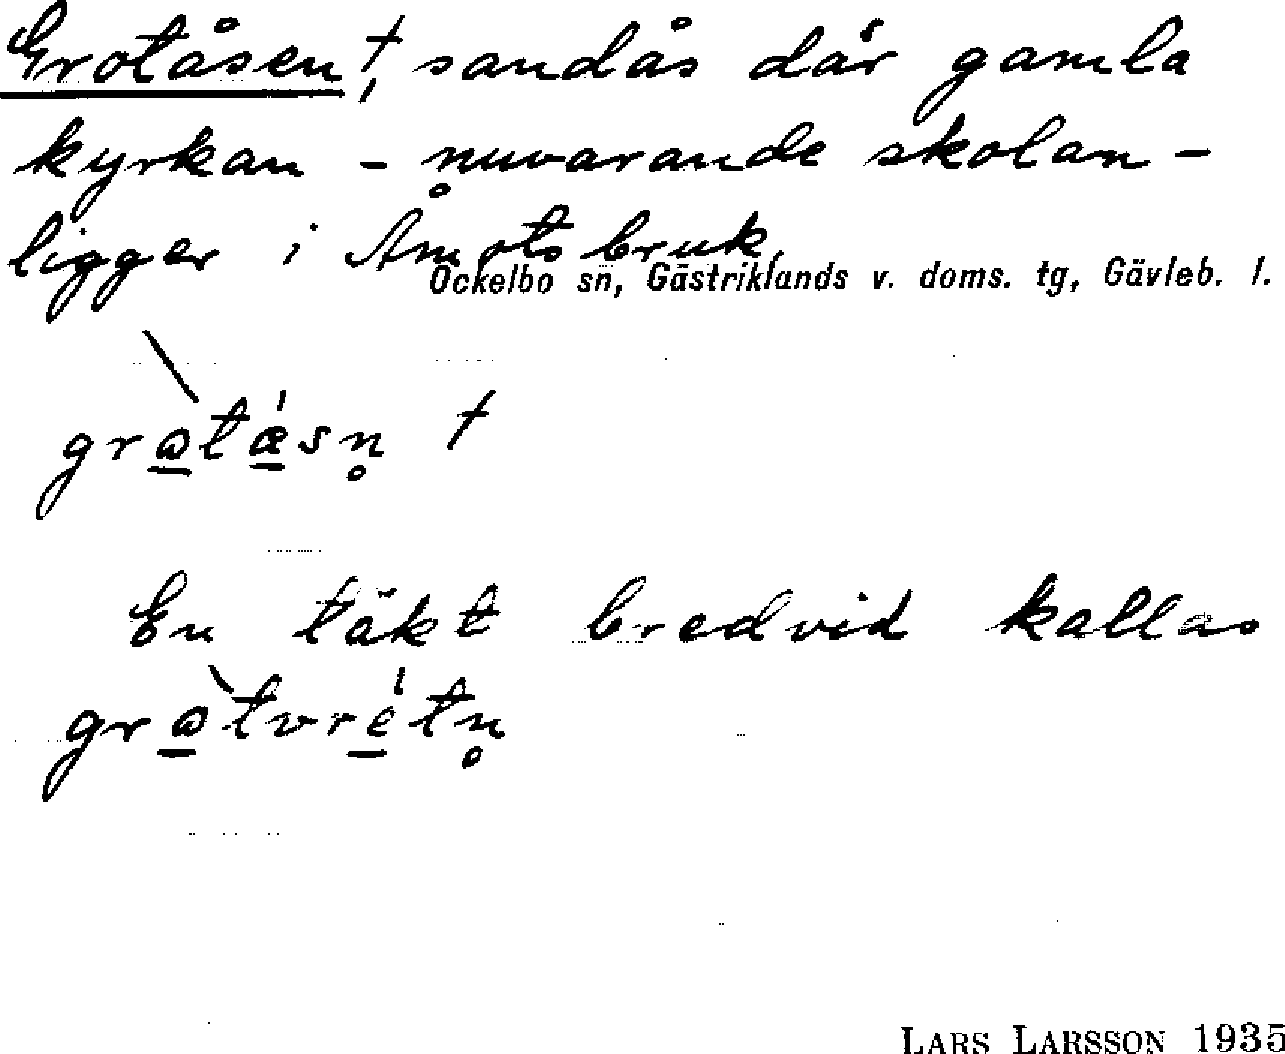 Grotåsen †, sandås där gamla
kyrkan – nuvarande skolan –
ligger i Åmots bruk.
Ockelbo sn, Gästriklands v. doms. tg, Gävleb. l.
†
En täkt bredvid kallas
LARS LARSSON 1935